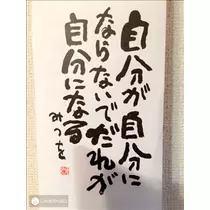 自分が自分に
ならないでだれが
自分になる
みつを